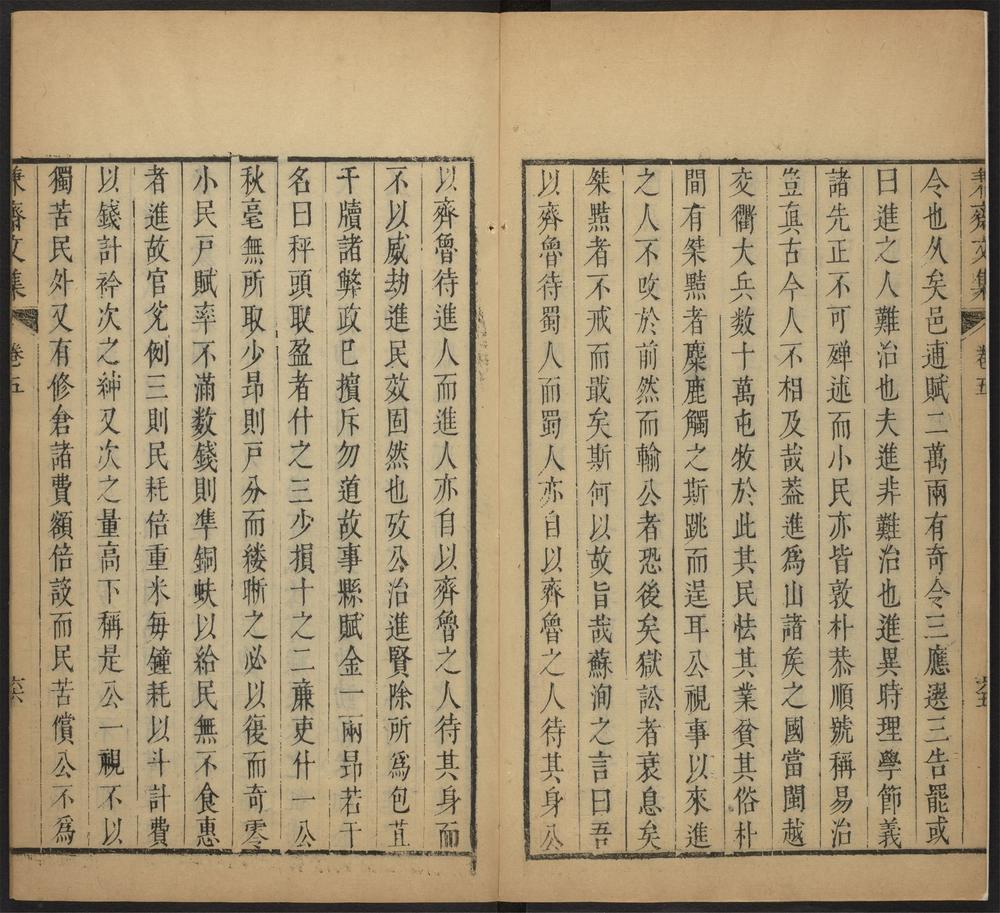 齋文集
卷五
令也久矣邑逋賦二萬兩有奇令三應選三告罷或
曰進之人難治也夫進非難治也進異時理學節義
諸先正不可殫述而小民亦皆敦朴恭順號稱易治
豈真古今人不相及哉葢進為山諸矦之國當閩越
交衢大兵数十萬屯牧於此其民怯其業貧其俗朴
間有桀黠者麋鹿觸之斯跳而逞耳公視事以來進
之人不呅於前然而輸公者恐後矣獄訟者衰息矣
桀黠者不戒而戢矣斯何以故旨哉蘇洵之言曰吾
以齊魯待蜀人而蜀人亦自以齊魯之人待其身公
以齊魯待進人而進人亦自以齊魯之人待其身而
不以威劫進民效固然也攷公治進賢除所為包苴
干牘諸弊政巳擯斥勿道故事縣賦金一兩昻若干
名曰秤頭取盈者什之三少損十之二亷吏什一公
秋毫無所取少昻則戸分而縷晰之必以復而奇零
小民戸賦率不滿数錢則凖銅蚨以給民無不食惠
者進故官兊例三則民耗倍重米每鐘耗以斗計費
以錢計衿次之紳又次之量高下稱是公一視不以
獨苦民外又有修倉諸費額倍設而民苦償公不為
齋文集
卷五
六